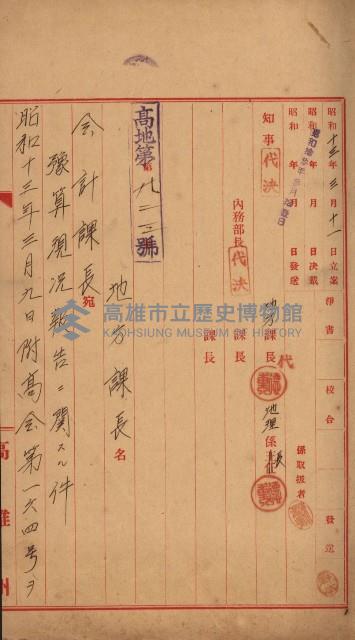 昭和十三年三月十一日立案
淨書
校合
發送
昭和 年 月 日決裁
昭和 年 月 日發送
係取扱者
知事
代決
地方課長
代
地理係長
內務部長
代決
課長
課長
高地第九二三號
地方課長名
会計課長宛
豫算現況報告ニ関スル件
昭和十三年三月九日附高会第一六四号ヲ
高雄州
高雄市立歷史博物館
KAOHSIUNG MUSEUM OF HISTORY